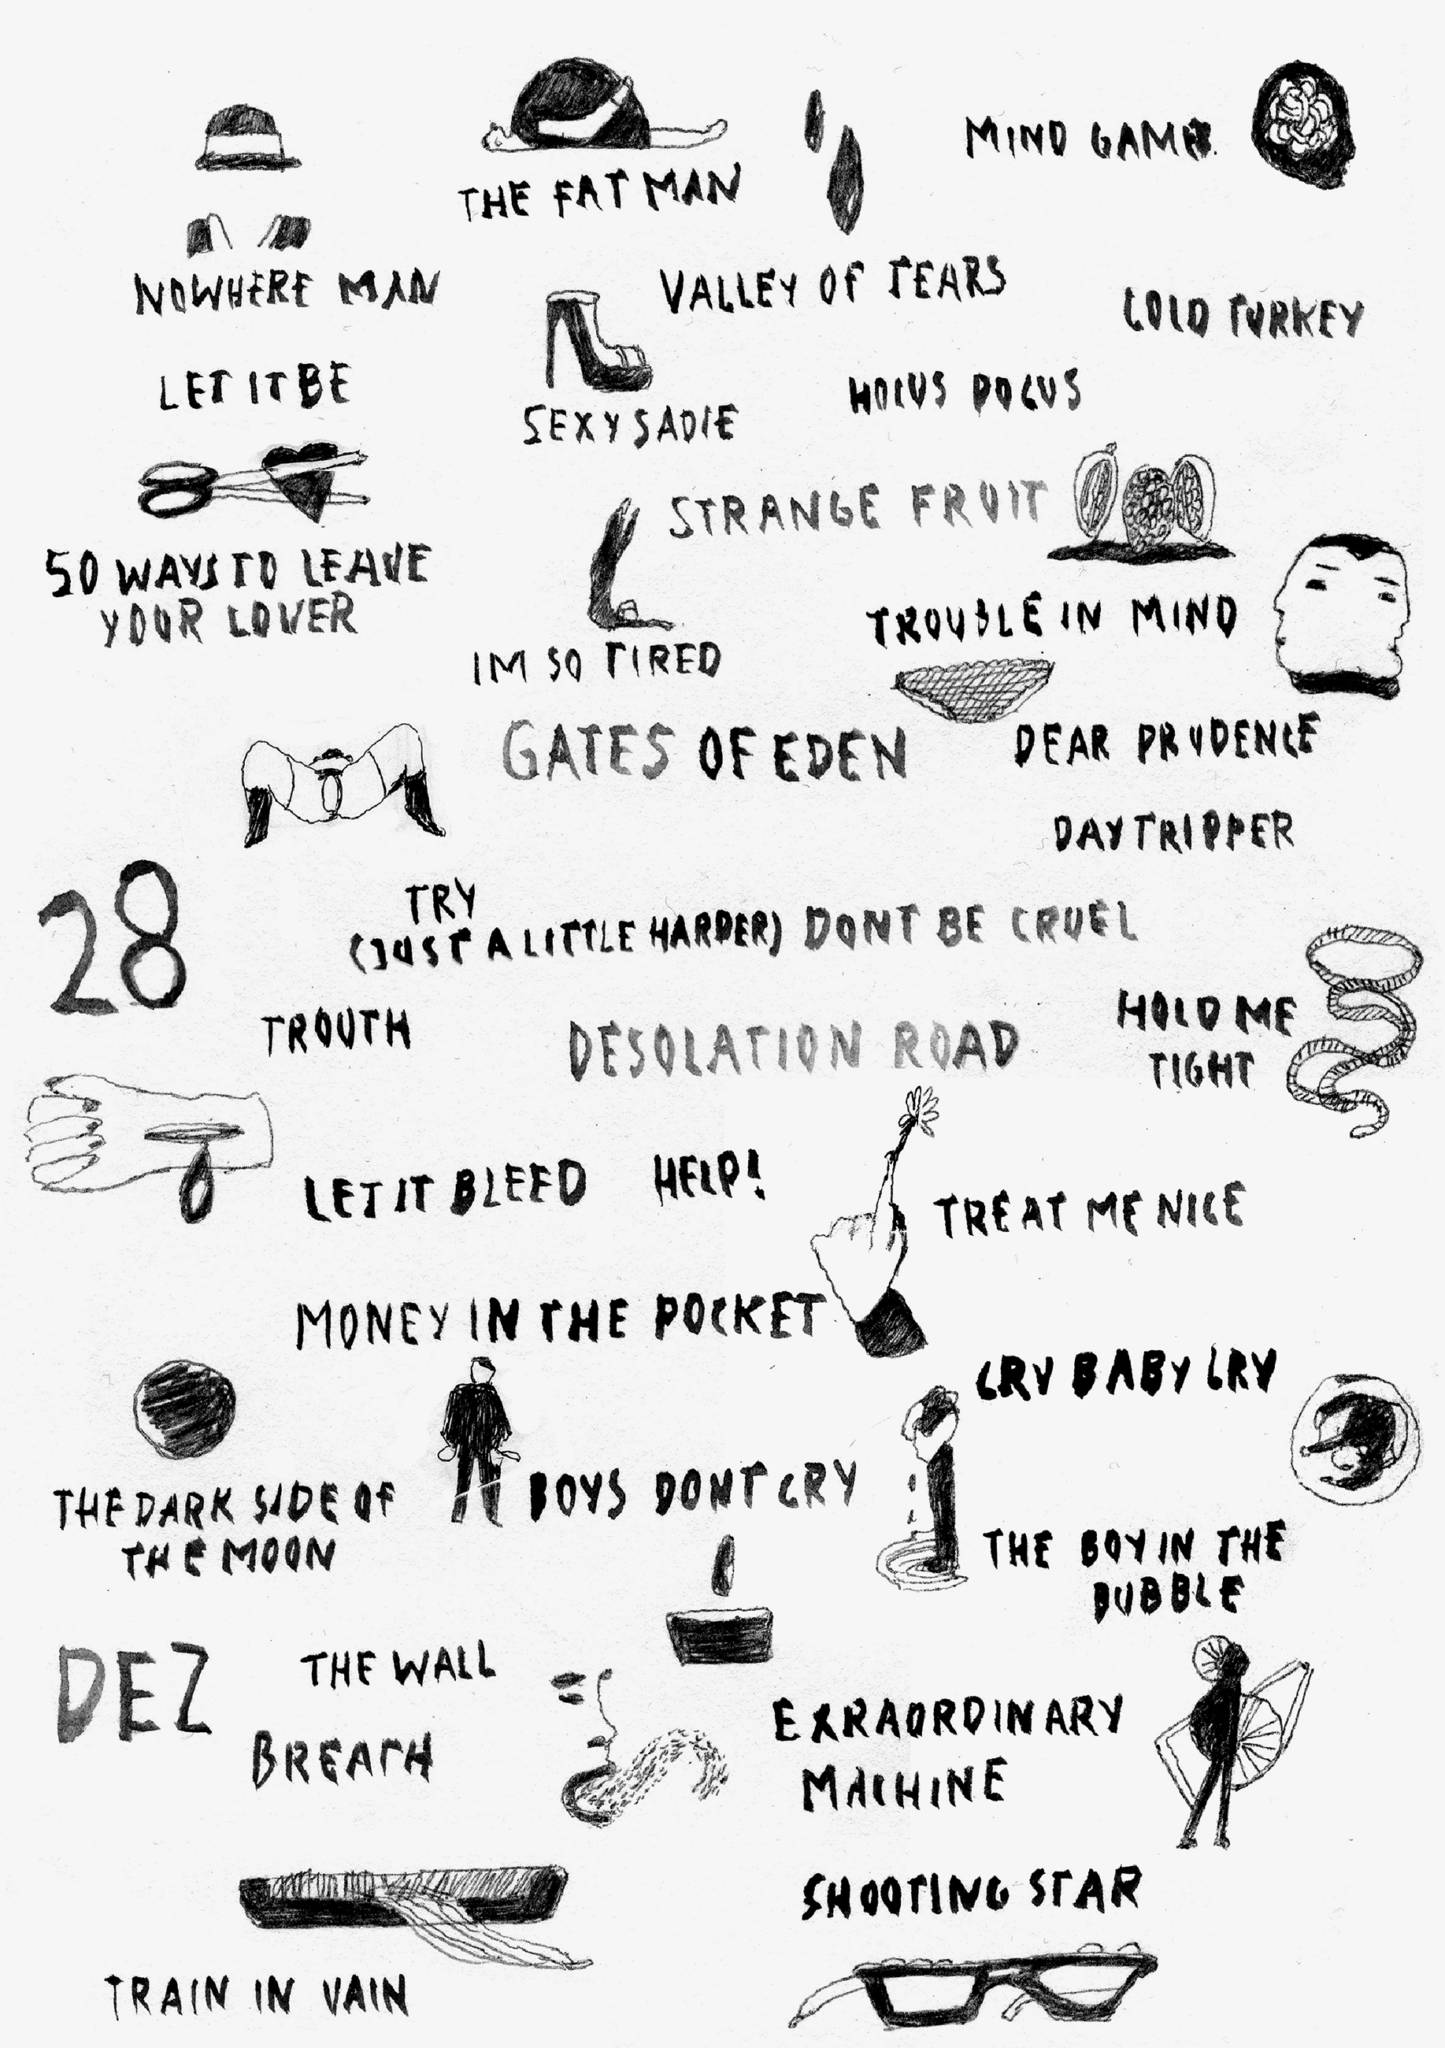 THE FAT MAN
MIND GAME
NOWHERE MAN
VALLEY OF TEARS
COLD TURKEY
LET IT BE
SEXY SADIE
HOCUS POCUS
STRANGE FRUIT
50 WAYS TO LEAVE
YOUR LOVER
IM SO TIRED
TROUBLE IN MIND
GATES OF EDEN
DEAR PRUDENCE
DAY TRIPPER
28
TRY
(JUST A LITTLE HARDER)
DONT BE CRUEL
TROUTH
DESOLATION ROAD
HOLD ME
TIGHT
LET IT BLEED
HELP!
TREAT ME NICE
MONEY IN THE POCKET
CRY BABY CRY
THE DARK SIDE OF
THE MOON
BOYS DONT CRY
THE BOY IN THE
BUBBLE
DEZ
THE WALL
BREATH
EXRAORDINARY
MACHINE
SHOOTING STAR
TRAIN IN VAIN